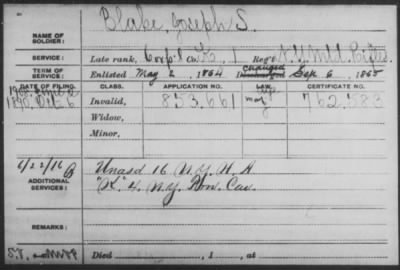 Blake, Joseph S.
NAME OF SOLDIER:
SERVICE: Late rank, Corp'l Co. K, 1 Reg't N.Y. Mtd. Rifles
TERM OF SERVICE: Enlisted May 2, 1864 Discharged Sep. 6, 1865
DATE OF FILING. CLASS. APPLICATION NO. LAW. CERTIFICATE NO.
1890, Oct 6 Invalid, 853.661 762.583
Widow,
Minor,
6/22/16
ADDITIONAL SERVICES: Unasd 16 N.Y. H. A.
"K" 4 N.Y. Prov. Cav.
REMARKS:
Died , 1 , at